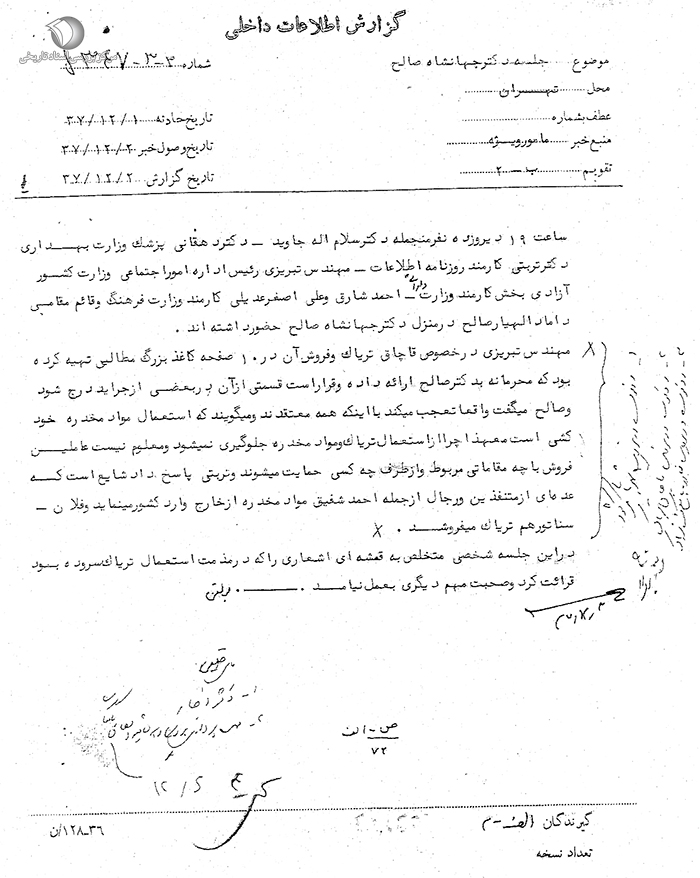 گزارش اطلاعات داخلی
مرکز بررسی اسناد تاریخی
موضوع جلسه دکتر جهانشاه صالح
شماره
محل تهران
عطف بشماره
تاریخ حادثه ۳۷/۱۲/۱
منبع خبر مامور ویژه
تاریخ وصول خبر ۳۷/۱۲/۲
تقویم ب - ۲
تاریخ گزارش ۳۷/۱۲/۲
ساعت ۱۹ دیروز ده نفر منجمله دکتر سلام اله جاوید - دکتر دهقانی پزشک وزارت بهداری
دکتر تربتی کارمند روزنامه اطلاعات - مهندس تبریزی رئیس اداره امور اجتماعی وزارت کشور
آزادی بخش کارمند وزارت دارائی - احمد شارق وعلی اصغر عدیلی کارمند وزارت فرهنگ وقائم مقامی
داماد الهیار صالح در منزل دکتر جهانشاه صالح حضور داشته اند .
مهندس تبریزی در خصوص قاچاق تریاک وفروش آن در ۱۰ صفحه کاغذ بزرگ مطالبی تهیه کرده
بود که محرمانه بدکتر صالح ارائه داده وقرار است قسمتی از آن در بعضی از جراید درج شود
وصالح میگفت واقعا تعجب میکند با اینکه همه معتقدند ومیگویند که استعمال مواد مخدره خود
کشی است معهذا چرا از استعمال تریاک ومواد مخدره جلوگیری نمیشود ومعلوم نیست عاملین
فروش با چه مقاماتی مربوط واز طرف چه کسی حمایت میشوند وتربتی پاسخ داد شایع است که
عده ای از متنفذین ورجال از جمله احمد شفیق مواد مخدره از خارج وارد کشور مینماید وفلان -
سناتور هم تریاک میفروشد .
در این جلسه شخصی متخلص به قمشه ای اشعاری را که در مذمت استعمال تریاک سروده بود
قرائت کرد وصحبت مهم دیگری بعمل نیامد .
ص - الف
۷۲
۱۲/۵
گیرندگان الف - م
۱۲۸-۳۶/ن
تعداد نسخه